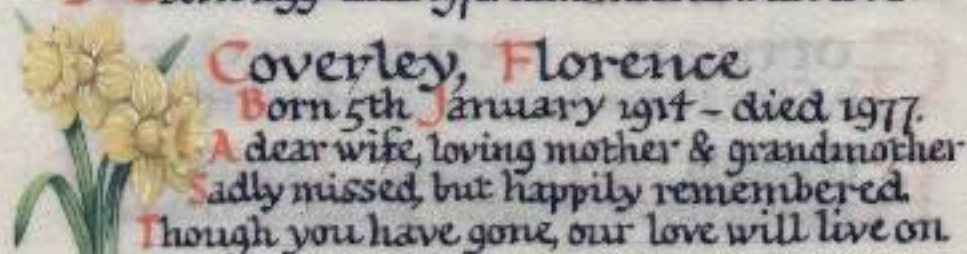 Coverley, Florence
Born 5th January 1914 - died 1977.
A dear wife, loving mother & grandmother
Sadly missed, but happily remembered.
Though you have gone, our love will live on.